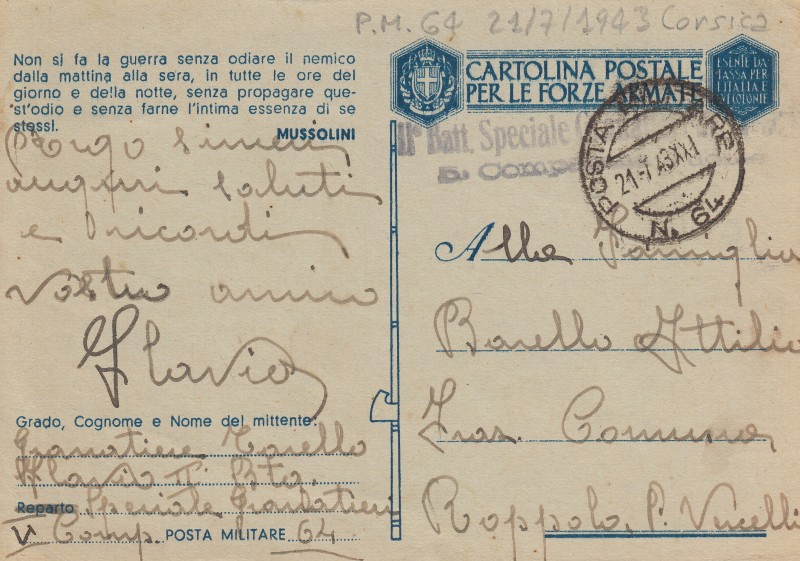 P.M. 64 21/7/1943 Corsica
Non si fa la guerra senza odiare il nemico
dalla mattina alla sera, in tutte le ore del
giorno e della notte, senza propagare que-
st'odio e senza farne l'intima essenza di se
stessi.
MUSSOLINI
Porgo sinceri
auguri saluti
e ricordi
vostro amico
Flavio
Grado, Cognome e Nome del mittente:
Granatiere Torello
Flavio II° Btg.
Reparto Speciale Granatieri
V Comp. POSTA MILITARE 64
CARTOLINA POSTALE
PER LE FORZE ARMATE
ESENTE DA
TASSA PER
L'ITALIA E
LE COLONIE
II° Batt. Speciale
5. Comp
POSTA MILITARE
21-7 43XXI
N. 64
Alla Famiglia
Barello Attilio
Fraz. Comuna
Roppolo P. Vercelli